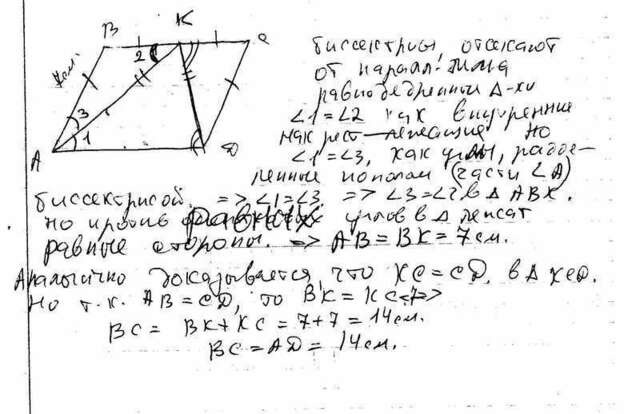 B K C
7см.
2
3
1
A D
биссектрисы, отсекают
от паралл-мма
равнобедренный Δ-ки
∠1=∠2 как внутренние
накрест лежащие но
∠1=∠3, как углы, разде-
ленные пополам (части ∠A)
биссектрисой. => ∠1=∠3. => ∠3=∠2 в Δ ABK.
но против равных углов в Δ лежат
равные стороны. => AB=BK=7см.
Аналогично доказывается, что KC=CD, в Δ KCD.
Но т.к. AB=CD, то BK=KC=7=>
BC= BK+KC=7+7=14см.
BC=AD=14см.